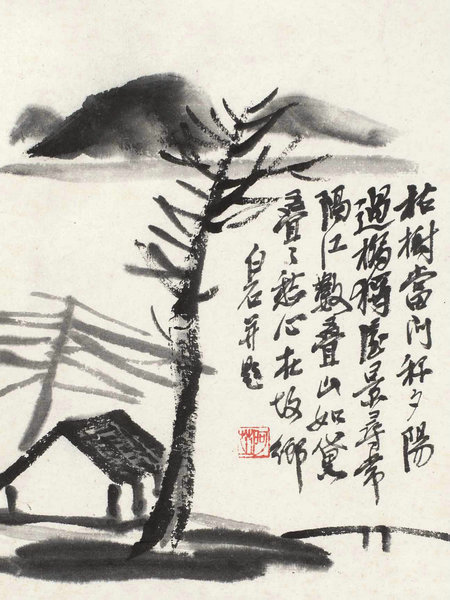 枯樹當門夕陽
過橋景尋常
隔江數疊山如黛
疊々愁心在故鄉
白石并題
阿芝